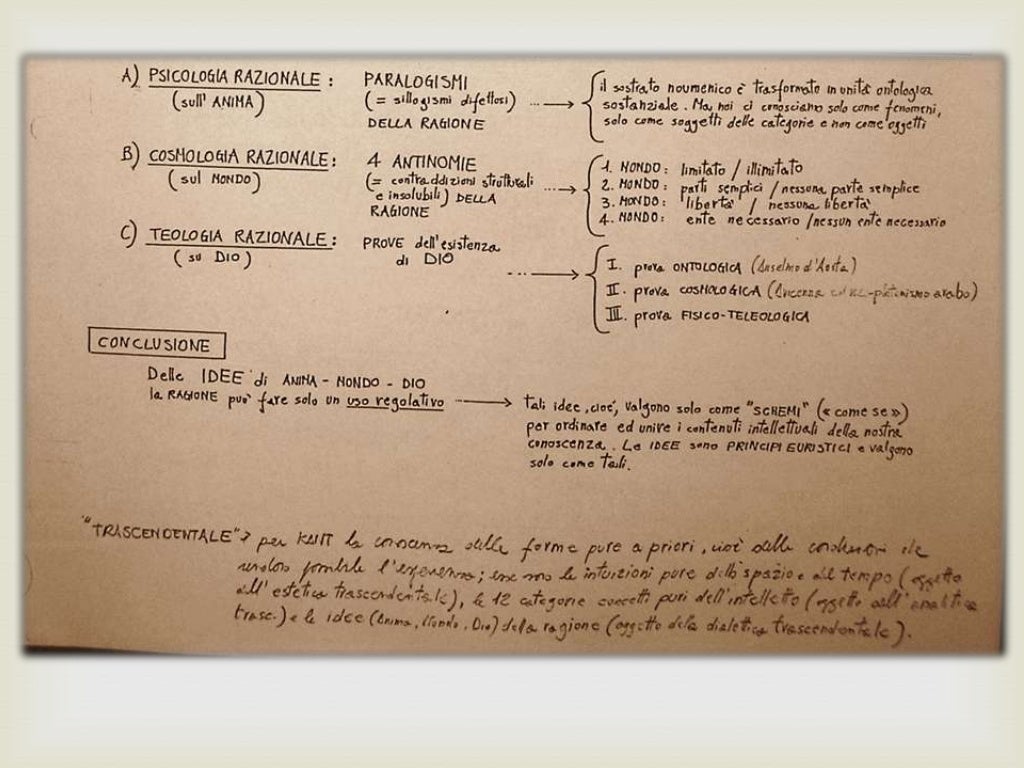 A) PSICOLOGIA RAZIONALE: PARALOGISMI
(sull' ANIMA) (= sillogismi difettosi)
DELLA RAGIONE
il sostrato noumenico è trasformato in unità ontologica
sostanziale. Ma noi ci conosciamo solo come fenomeni,
solo come soggetti delle categorie e non come oggetti
B) COSMOLOGIA RAZIONALE: 4 ANTINOMIE
(sul MONDO) (= contraddizioni strutturali
e insolubili) DELLA
RAGIONE
1. MONDO: limitato / illimitato
2. MONDO: parti semplici / nessuna parte semplice
3. MONDO: libertà / nessuna libertà
4. MONDO: ente necessario / nessun ente necessario
C) TEOLOGIA RAZIONALE: PROVE dell'esistenza
(su DIO) di DIO
I. prova ONTOLOGICA (Anselmo d'Aosta)
II. prova COSMOLOGICA (Avicenna arabo)
III. prova FISICO-TELEOLOGICA
CONCLUSIONE
Delle IDEE di ANIMA - MONDO - DIO
la RAGIONE può fare solo un uso regolativo
tali idee, cioè, valgono solo come "SCHEMI" (« come se »)
per ordinare ed unire i contenuti intellettuali della nostra
conoscenza. Le IDEE sono PRINCIPI EURISTICI e valgono
solo come tali.
"TRASCENDENTALE" → per KANT la conoscenza delle forme pure a priori, cioè delle condizioni che
rendono possibile l'esperienza; esse sono le intuizioni pure dello spazio e del tempo (oggetto
dell'estetica trascendentale), le 12 categorie concetti puri dell'intelletto (oggetto dell'analitica
trasc.) e le idee (Anima, Mondo, Dio) della ragione (oggetto della dialettica trascendentale).